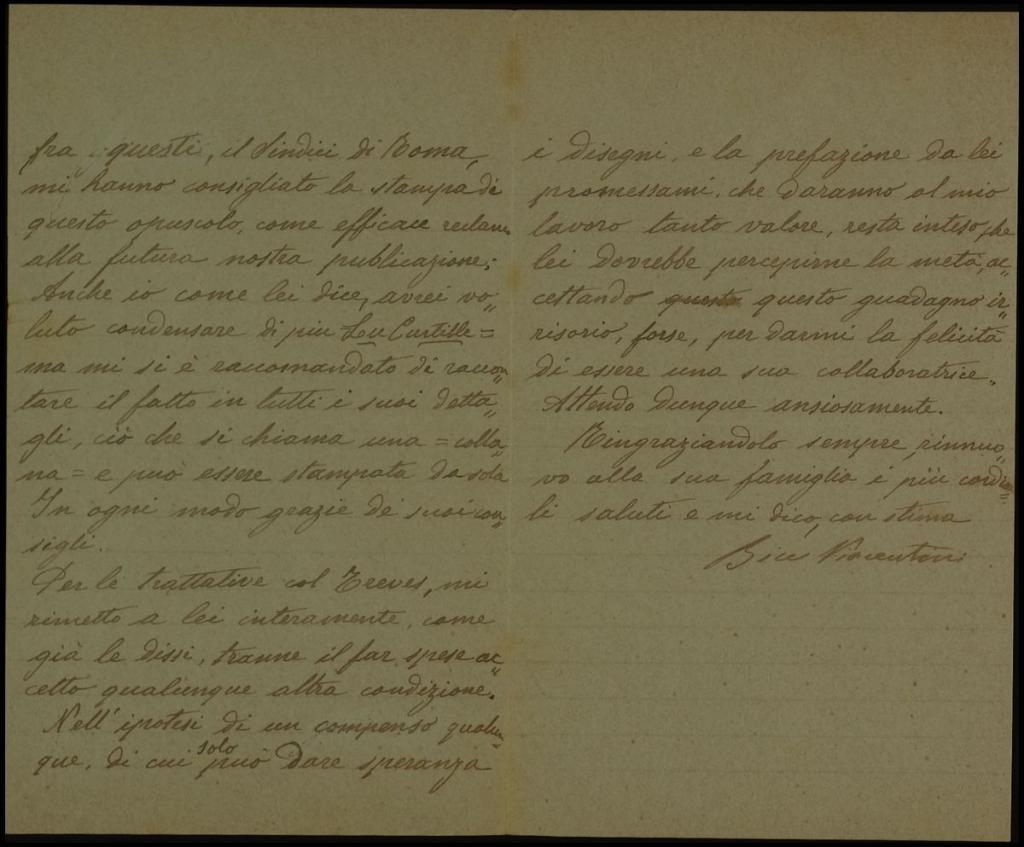 fra questi, il Sindici di Roma,
mi hanno consigliato la stampa di
questo opuscolo, come efficace reclame
alla futura nostra publicazione;
Anche io come lei dice, avrei vo„
luto condensare di piu Lou Curtille =
ma mi si è raccomandato di raccon„
tare il fatto in tutti i suoi detta„
gli, ciò che si chiama una = colla„
na = e può essere stampata da sola
In ogni modo grazie de' suoi con„
sigli.
Per le trattative col Treves, mi
rimetto a lei interamente, come
già le dissi, tranne il far spese ac„
cetto qualunque altra condizione.
Nell' ipotesi di un compenso qualun„
que, di cui solo può dare speranza
i disegni, e la prefazione da lei
promessami, che daranno al mio
lavoro tanto valore, resta inteso, che
lei dovrebbe percepirne la metà, ac„
cettando questo questo guadagno ir„
risorio, forse, per darmi la felicità
di essere una sua collaboratrice.
Attendo dunque ansiosamente.
Ringraziandolo sempre rinnuo„
vo alla sua famiglia i più cordia=
li saluti e mi dico, con stima
Bice Viocentini